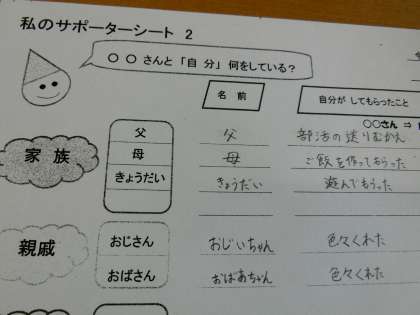 私のサポーターシート 2
〇 〇 さんと「自 分」何をしている？
名 前
自分が してもらったこと
〇〇さん ⇒
家 族
父 父 部活の送りむかえ
母 母 ご飯を作ってもらった
きょうだい きょうだい 遊んでもらった
親戚
おじさん おじいちゃん 色々くれた
おばさん おばあちゃん 色々くれた